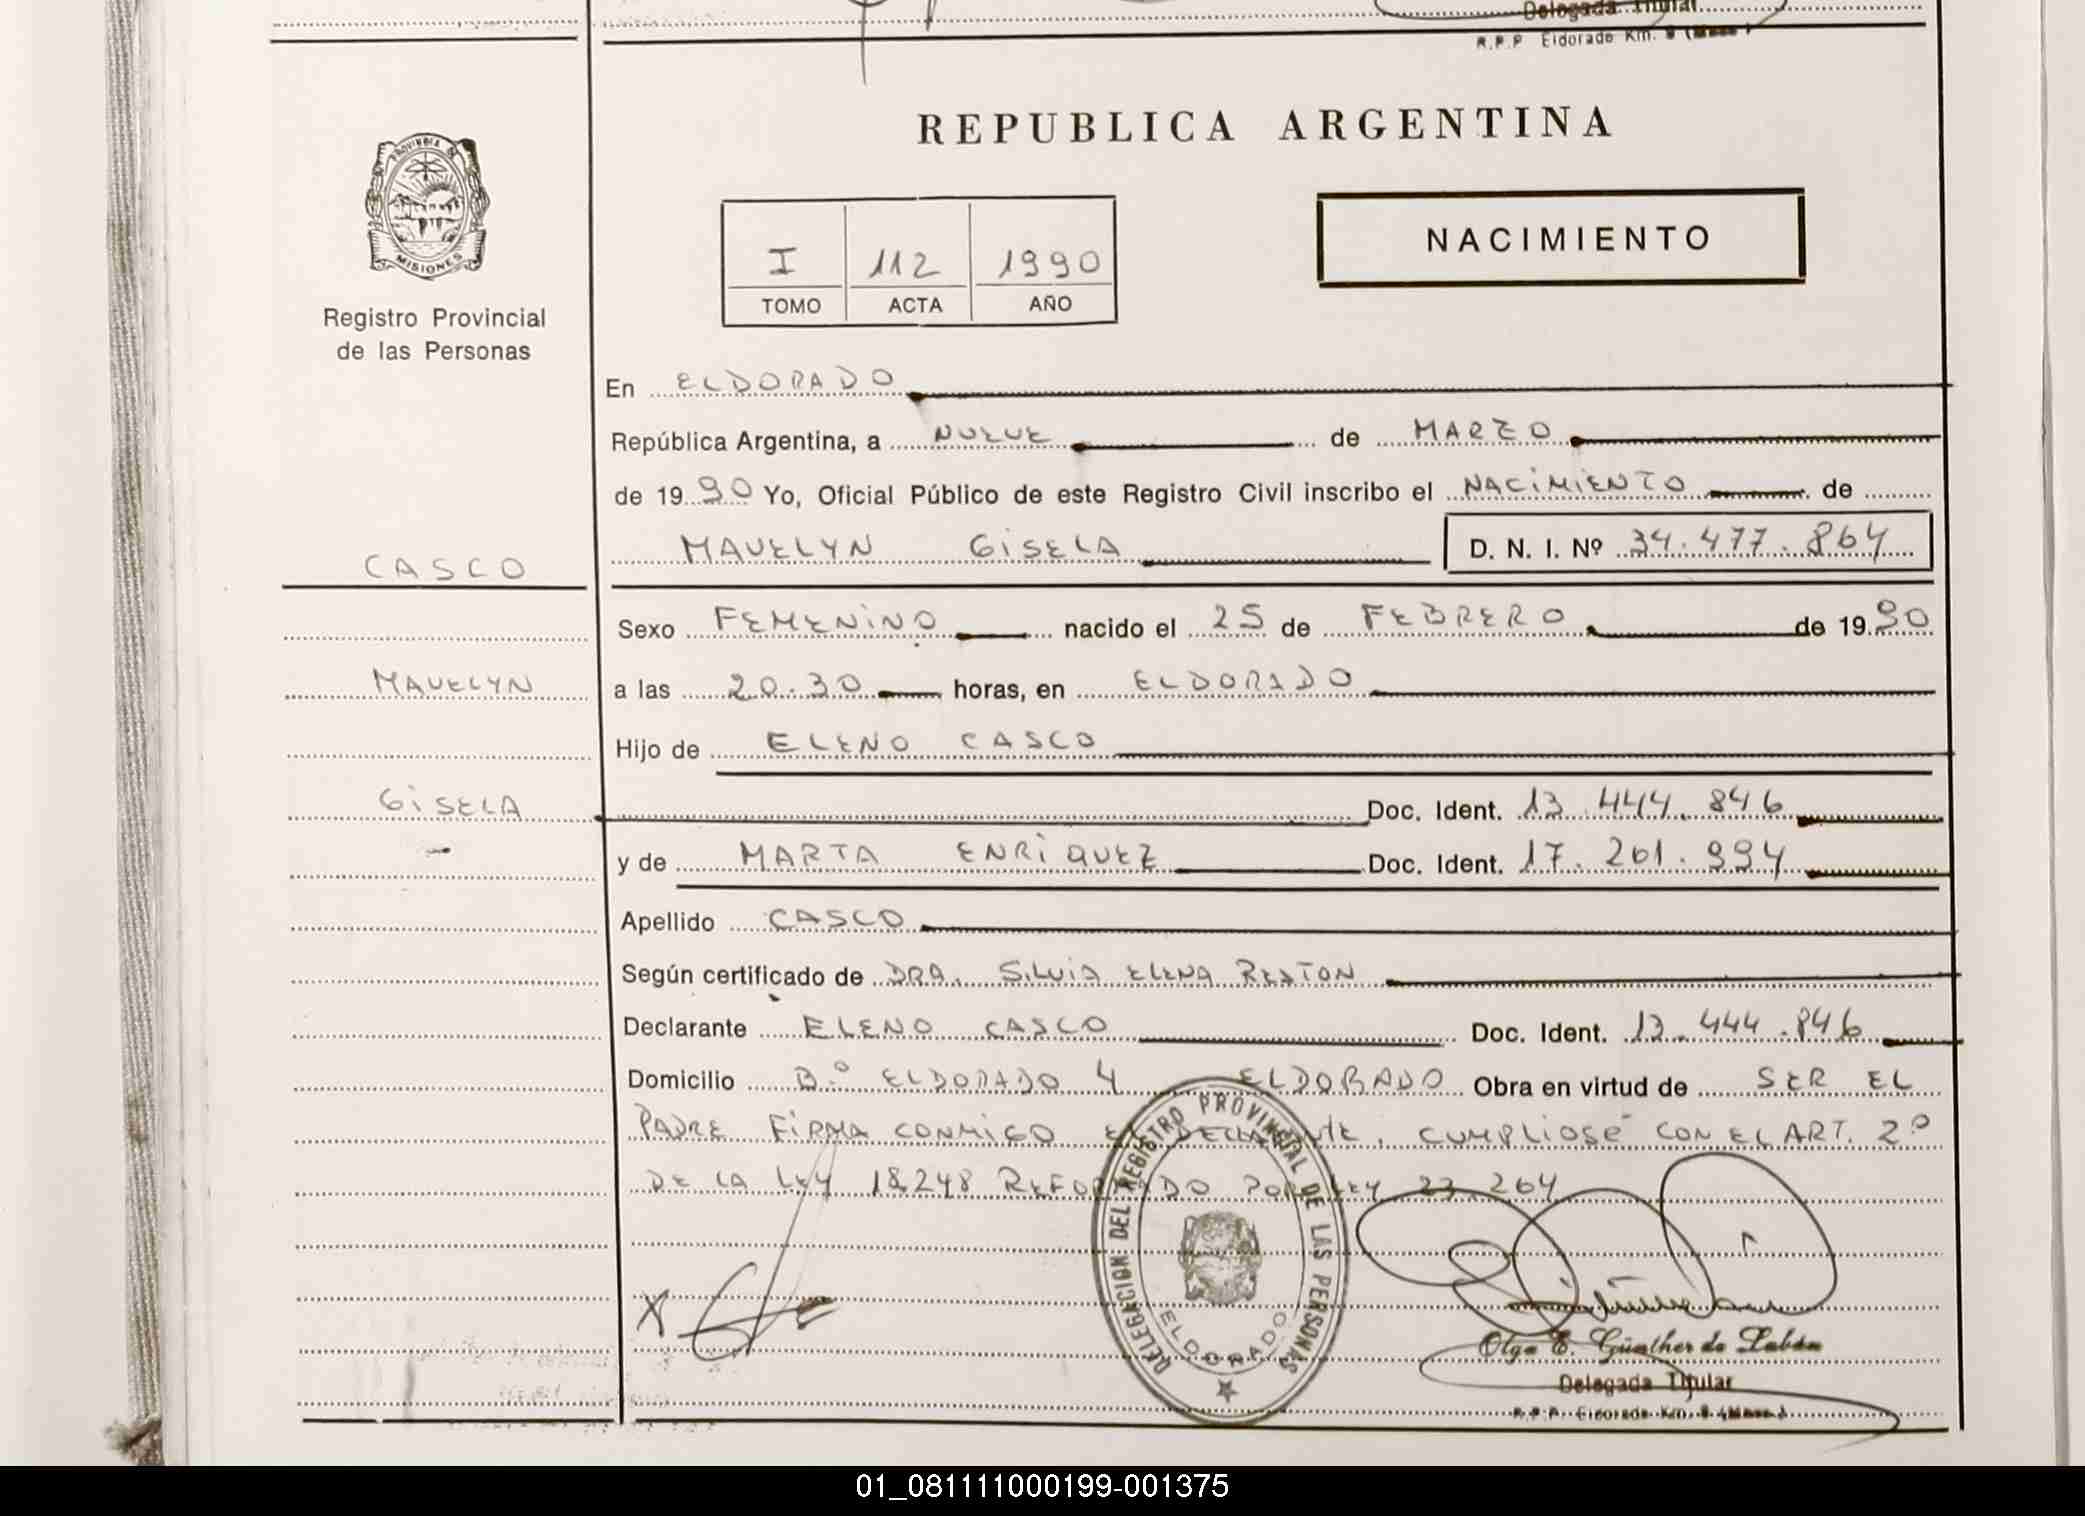 Delegada Titular
R.P.P Eldorado Km. 9 (Mnes)
PROVINCIA DE
MISIONES
Registro Provincial
de las Personas
REPUBLICA ARGENTINA
I 112 1990
TOMO ACTA AÑO
NACIMIENTO
En ELDORADO
República Argentina, a NUEVE de MARZO
de 1990 Yo, Oficial Público de este Registro Civil inscribo el NACIMIENTO de
MAVELYN GISELA D. N. I. Nº 34.477.864
CASCO
Sexo FEMENINO nacido el 25 de FEBRERO de 1990
MAVELYN
a las 20.30 horas, en ELDORADO
Hijo de ELENO CASCO
GISELA
Doc. Ident. 13.444.846
y de MARTA ENRIQUEZ Doc. Ident. 17.261.994
Apellido CASCO
Según certificado de DRA. SILVIA ELENA RESTON
Declarante ELENO CASCO Doc. Ident. 13.444.846
Domicilio Bº ELDORADO 4 ELDORADO Obra en virtud de SER EL
PADRE FIRMA CONMIGO EL CUMPLIOSE CON EL ART. 2º
DE LA LEY 18248 REFORMADO POR LEY 23.264
DELEGACION DEL REGISTRO PROVINCIAL DE LAS PERSONAS
ELDORADO
X
Olga E. Günther de Labán
Delegada Titular
R.P.P. Eldorado Km. 9 (Mnes)
01_081111000199-001375